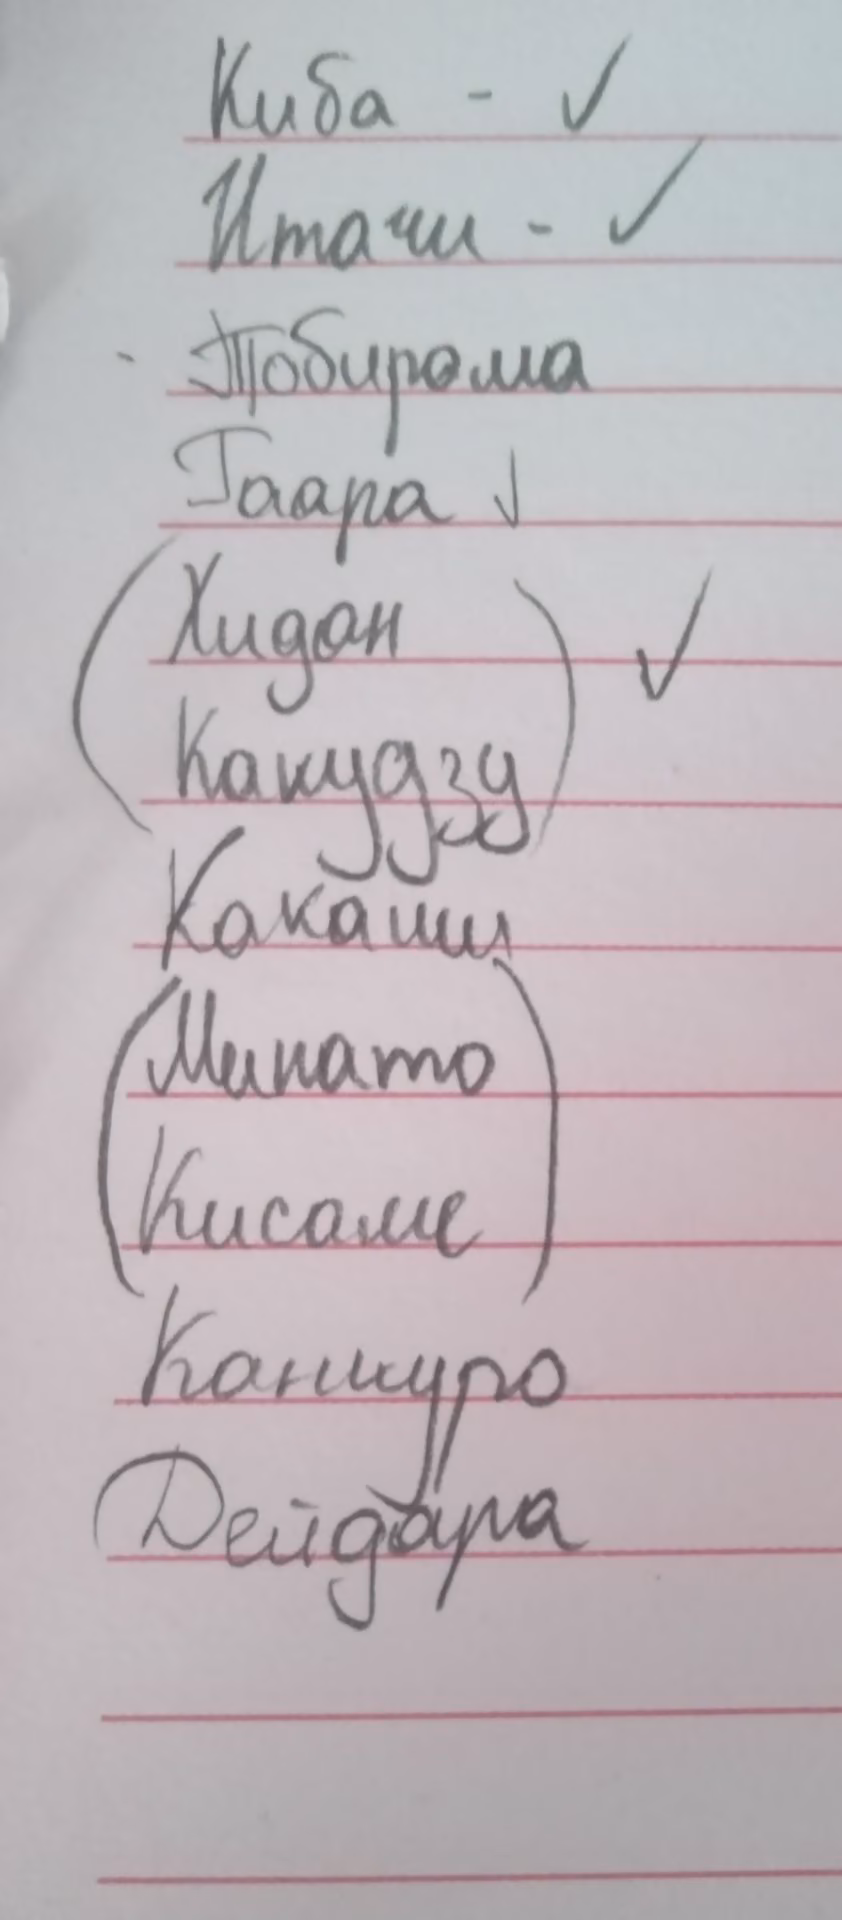 Киба - ✓
Итачи - ✓
- Тобирама
Гаара ✓
(Хидан
Какудзу) ✓
Какаши
(Минато
Кисаме)
Канкуро
Дейдара